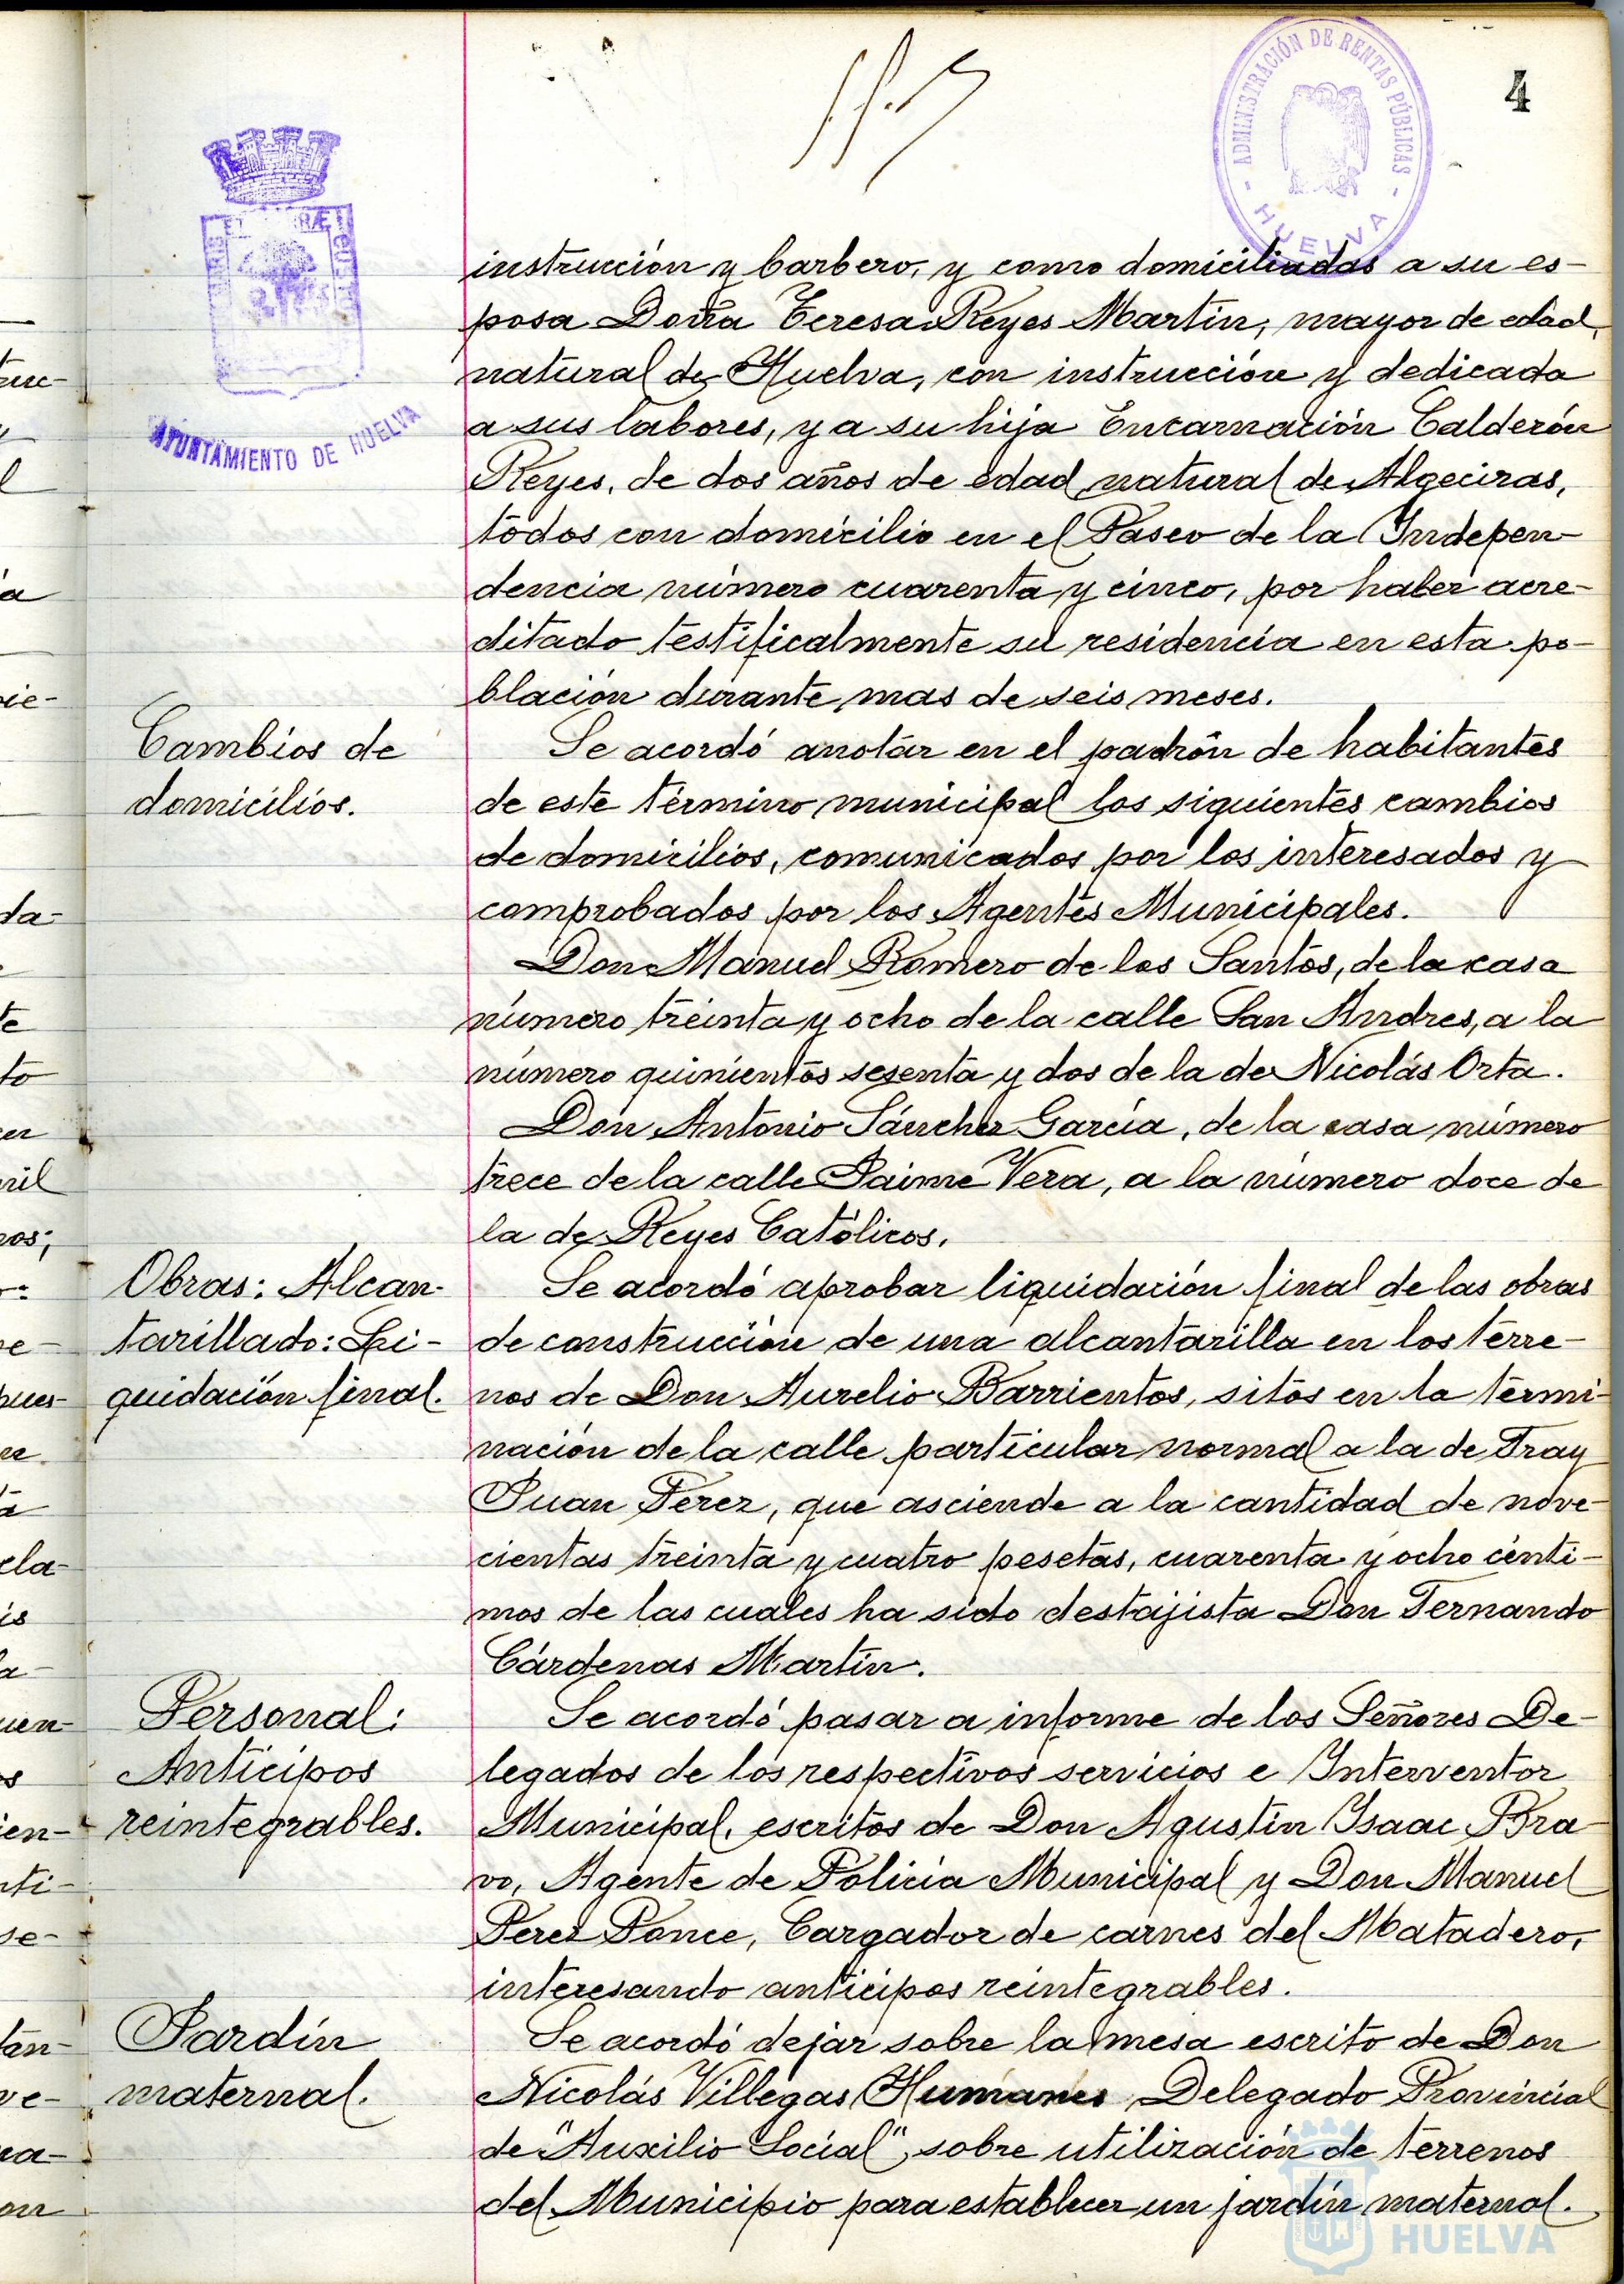 4
ADMINISTRACIÓN DE RENTAS PÚBLICAS
HUELVA
AYUNTAMIENTO DE HUELVA
instrucción y barbero, y como domiciliadas a su es-
posa Doña Teresa Reyes Martín, mayor de edad,
natural de Huelva, con instrucción y dedicada
a sus labores, y a su hija Encarnación Calderón
Reyes, de dos años de edad natural de Algeciras,
todos con domicilio en el Paseo de la Indepen-
dencia número cuarenta y cinco, por haber acre-
ditado testificalmente su residencia en esta po-
blación durante mas de seis meses.
Cambios de
domicilios.
Se acordó anotar en el padrón de habitantes
de este término municipal los siguientes cambios
de domicilios, comunicados por los interesados y
comprobados por los Agentes Municipales.
Don Manuel Romero de los Santos, de la casa
número treinta y ocho de la calle San Andres, a la
número quinientos sesenta y dos de la de Nicolás Orta.
Don Antonio Sánchez García, de la casa número
trece de la calle Jaime Vera, a la número doce de
la de Reyes Católicos.
Obras: Alcan-
tarillado: Li-
quidación final.
Se acordó aprobar liquidación final de las obras
de construcción de una alcantarilla en los terre-
nos de Don Aurelio Barrientos, sitos en la termi-
nación de la calle particular normal a la de Fray
Juan Perez, que asciende a la cantidad de nove-
cientas treinta y cuatro pesetas, cuarenta y ocho cénti-
mos de las cuales ha sido destajista Don Fernando
Cárdenas Martín.
Personal:
Anticipos
reintegrables.
Se acordó pasar a informe de los Señores De-
legados de los respectivos servicios e Interventor
Municipal, escritos de Don Agustín Isaac Bra-
vo, Agente de Policía Municipal y Don Manuel
Perez Ponce, Cargador de carnes del Matadero,
interesando anticipos reintegrables.
Jardín
maternal.
Se acordó dejar sobre la mesa escrito de Don
Nicolás Villegas Humanes Delegado Provincial
de "Auxilio Social", sobre utilización de terrenos
del Municipio para establecer un jardín maternal.
HUELVA